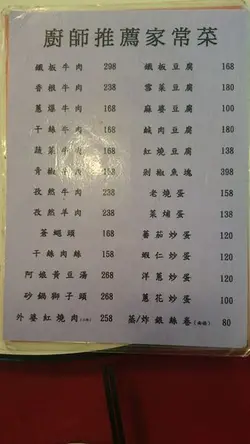 廚師推薦家常菜
鐵板牛肉 298 鐵板豆腐 168
香根牛肉 238 雪菜豆腐 180
蔥爆牛肉 168 麻婆豆腐 100
干絲牛肉 168 鹹肉豆腐 180
蔬菜牛肉 168 紅燒豆腐 138
青椒牛肉 158 剁椒魚塊 398
孜然牛肉 238 老燒蛋 158
孜然羊肉 238 菜埔蛋 138
蒼蠅頭 168 蕃茄炒蛋 120
干絲肉絲 158 蝦仁炒蛋 120
阿娘黃豆湯 268 洋蔥炒蛋 120
砂鍋獅子頭 268 蔥花炒蛋 100
外婆紅燒肉 258 蒸/炸銀絲卷 80